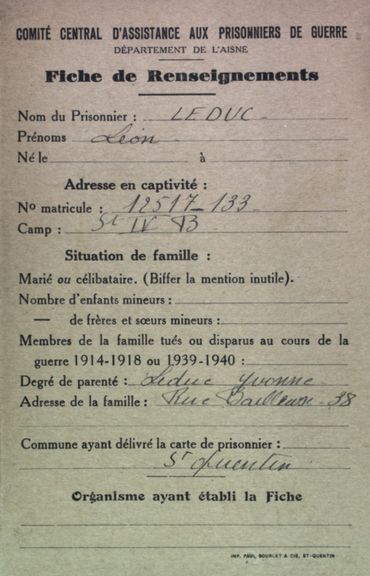 COMITÉ CENTRAL D'ASSISTANCE AUX PRISONNIERS DE GUERRE
DÉPARTEMENT DE L'AISNE
Fiche de Renseignements
Nom du Prisonnier : LEDUC
Prénoms Léon
Né le à
Adresse en captivité :
No matricule : 12517-133
Camp : St IV B
Situation de famille :
Marié ou célibataire. (Biffer la mention inutile).
Nombre d'enfants mineurs :
— de frères et sœurs mineurs :
Membres de la famille tués ou disparus au cours de la
guerre 1914-1918 ou 1939-1940 :
Degré de parenté : Leduc Yvonne
Adresse de la famille : Rue 38
Commune ayant délivré la carte de prisonnier :
St Quentin
Organisme ayant établi la Fiche
IMP. PAUL BOURLET & CIE, ST-QUENTIN